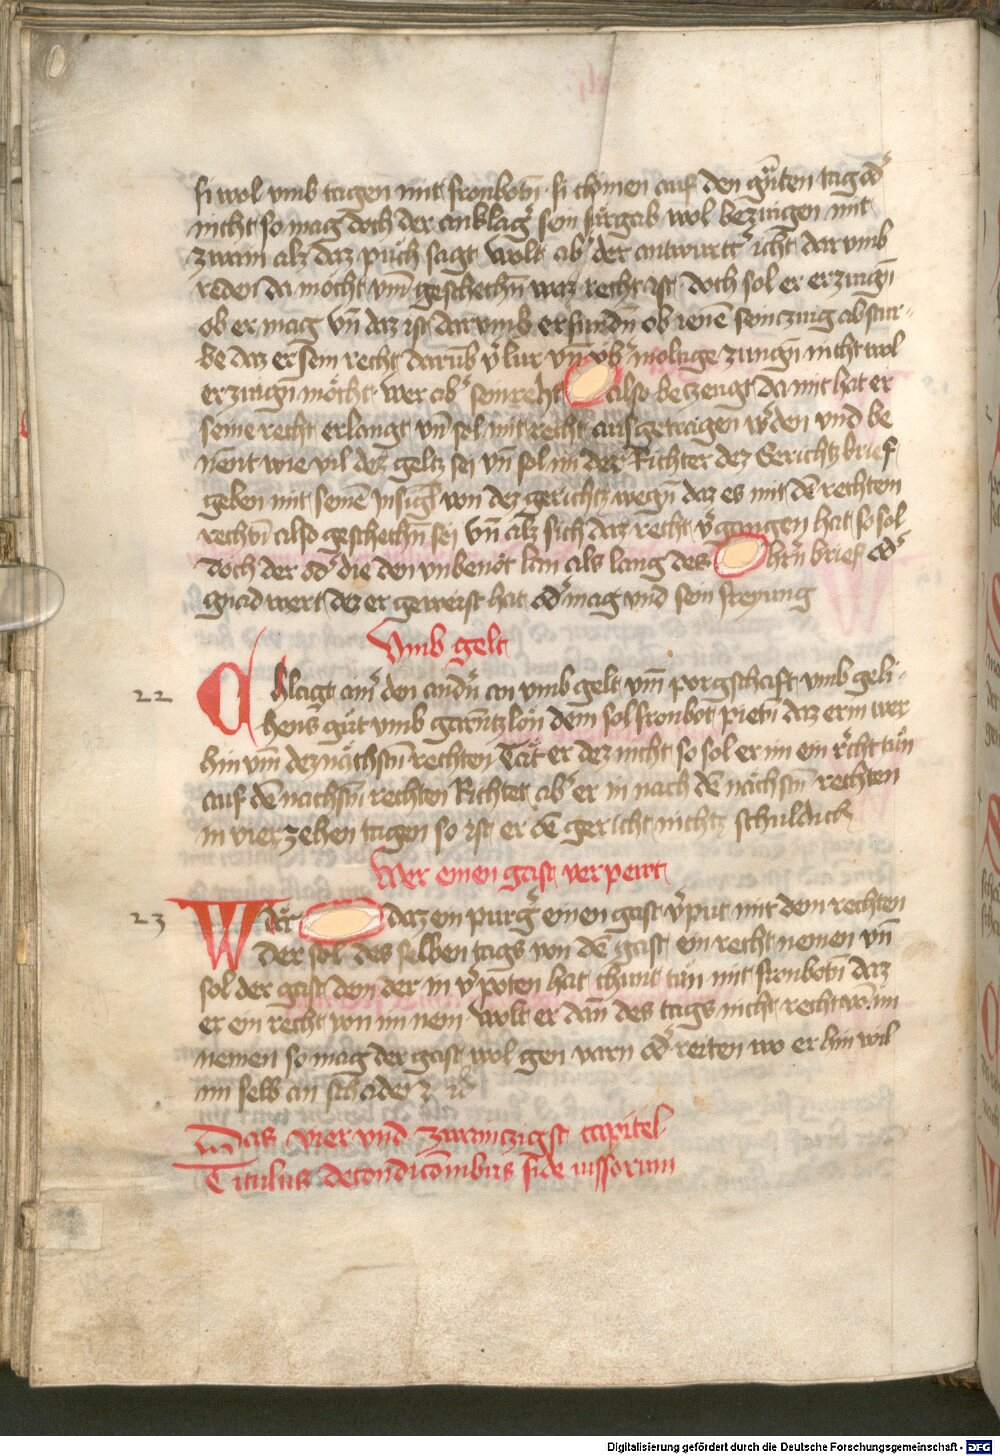 si wol vmb tagen mit fronbotn̄ · si chömen auf den gu̎ten tag od'
nicht so mag doch der anklag' sein su̎rgab wol bezaigen mit
zwain alz daz pu̎ch sagt wolt ab' der antwurtt' icht dar vmb
reden da möcht vm̄ geschechn̄ waz recht ist · doch sol er erzaugn̄
ob er mag vn̄ daz ist dar vmb erfundn̄ ob ienē sein czaug ab star-
be daz er sein recht darūb v'lur vn̄ vb' molige zaugn̄ nicht wol
erzaugn̄ möcht · wer ab' sein recht also beczeugt da mit hat er
seine recht erlangt vn̄ sol mit recht auf getragen w'den vnd be
nent wie vil dez geltz sei vn̄ sol im der Richter dez Gerichtz brief
geben mit seinē Insigl von dez gerichtz wegn̄ daz es mit dē rechten
rechtn̄ also geschechn̄ sei vn̄ alz sich daz recht v'gangen hat so sol
doch der od' die den vnbenöt lan als lang des htn̄ brief od'
gnad wert dez er geweist hat od' mag vnd sein freyung
Vmb gelt
22 Chlagt ain' den andn̄ an vmb gelt vm̄ porgschaft vmb geli-
hens gu̎t vmb garntzlön dem sol fronbot pietn̄ daz er in wer
hin vm̄ dez nächstn̄ rechten Tät er dez nicht so sol er im ein r'cht tu̎n
auf dē nachstn̄ rechten Richtet ab' er in nach dē nächstn̄ rechten
in vierzehen tagen so ist er dē gericht nichtz schuldich
Wer einen gast verpeut
23 Wär daz ein purg' einen gast v'put mit dem rechten
der sol des selben tags von dē gast ein recht nemen vn̄
sol der gast dem der in v'poten hat chunt tu̎n mit fronbotn̄ daz
er ein recht von im nem · wolt er dan̄ des tags nicht recht von im
nemen so mag der gast wol gen varn od' reiten wo er hin wil
im selb an schaden
Das vier vnd zwainczigst capitel
Titulus de condicōnibus fide iussorum
Digitalisierung gefördert durch die Deutsche Forschungsgemeinschaft - DFG